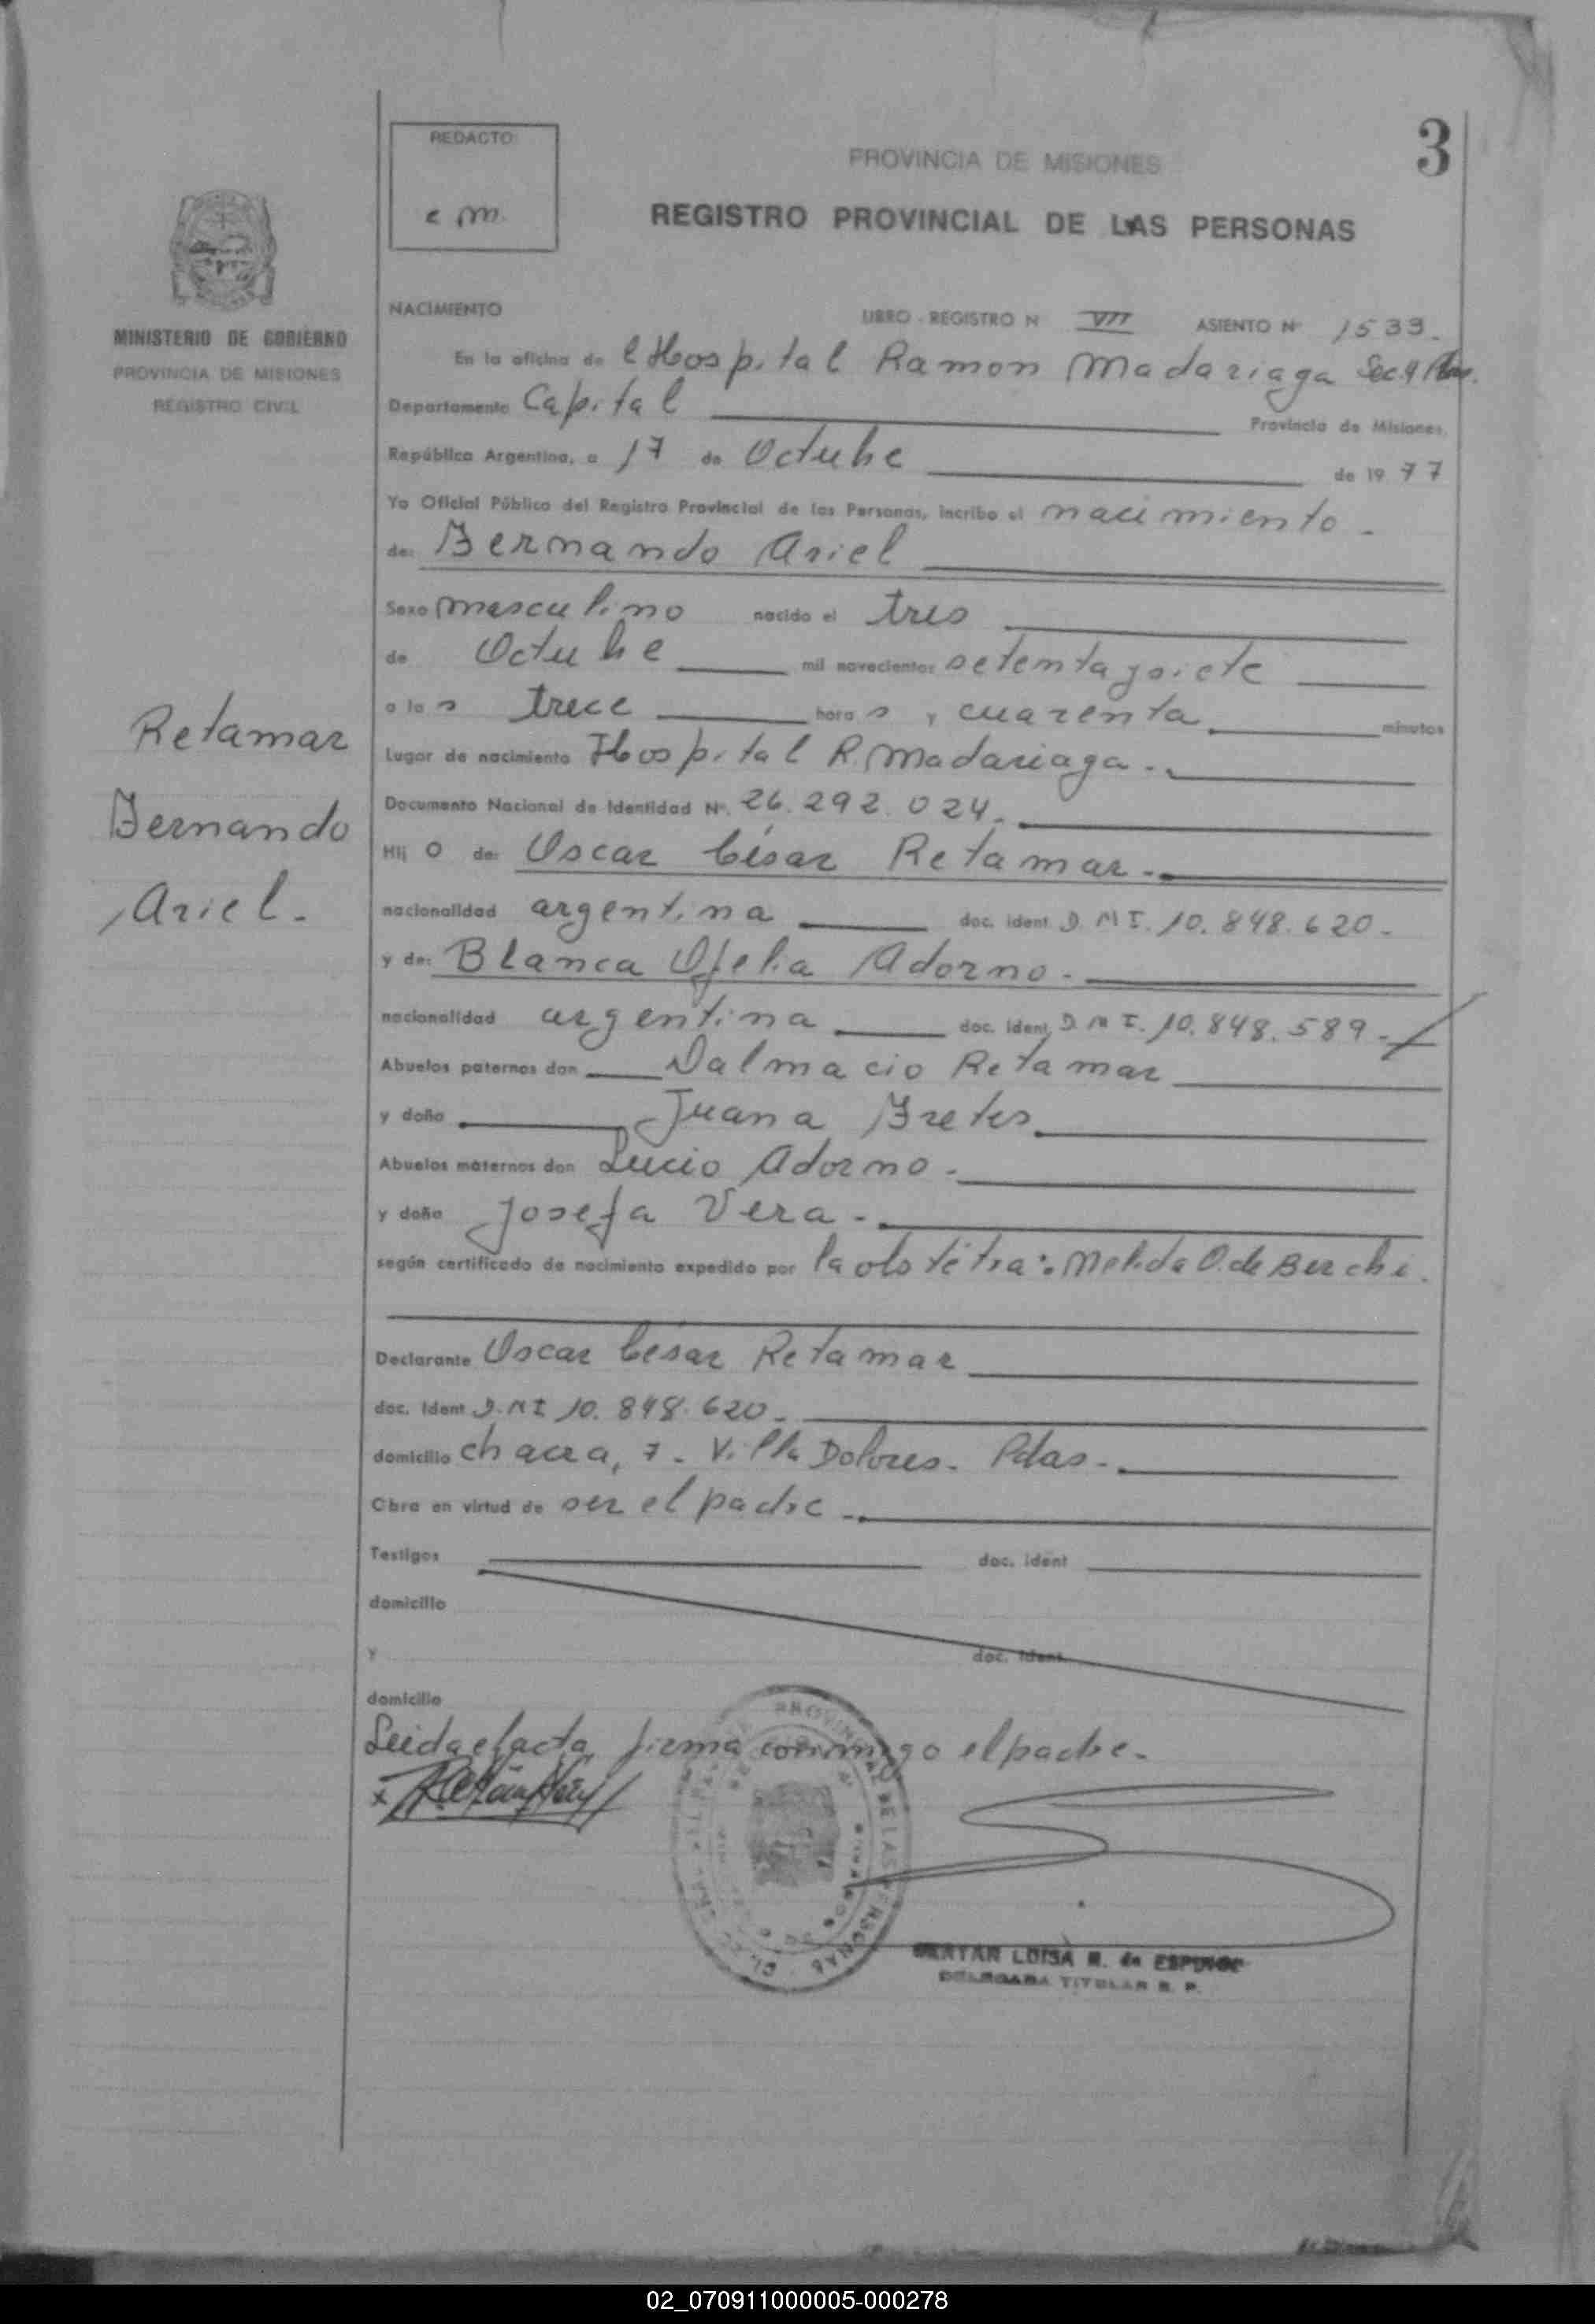 REDACTO
e m.
3
PROVINCIA DE MISIONES
REGISTRO PROVINCIAL DE LAS PERSONAS
MINISTERIO DE GOBIERNO
PROVINCIA DE MISIONES
REGISTRO CIVIL
NACIMIENTO LIBRO - REGISTRO N VII ASIENTO Nº 1533.
En la oficina de l Hospital Ramon Madariaga Secc
Departamento Capital Provincia de Misiones,
República Argentina, a 17 de Octubre de 1977
Yo Oficial Público del Registro Provincial de las Personas, incribo el nacimiento.
de: Fernando Ariel
Sexo masculino nacido el tres
de Octubre mil novecientos setenta y siete
a las trece horas y cuarenta minutos
Lugar de nacimiento Hospital R. Madariaga.
Documento Nacional de Identidad Nº. 26.292.024.
Hijo de: Oscar César Retamar.
nacionalidad argentina doc. ident. D.N I. 10.848.620.
y de: Blanca Ofelia Adorno.
nacionalidad argentina doc. ident. D.N I. 10.848.589.
Abuelos paternos don Dalmacio Retamar
y doña Juana Fretes
Abuelos maternos don Lucio Adorno.
y doña Josefa Vera.
según certificado de nacimiento expedido por la obstétra: Melida O. de Berchi.
Declarante Oscar César Retamar
doc. Ident D.N I 10.848.620.
domicilio chacra, 7. Villa Dolores. Pdas.
Obra en virtud de ser el padre.
Testigos doc. ident
domicilio
y doc. ident
domicilio
Leida el acta, firma conmigo el padre.
Retamar
Fernando
Ariel.
LUISA R. de
DELEGADA TITULAR R. P.
02_070911000005-000278